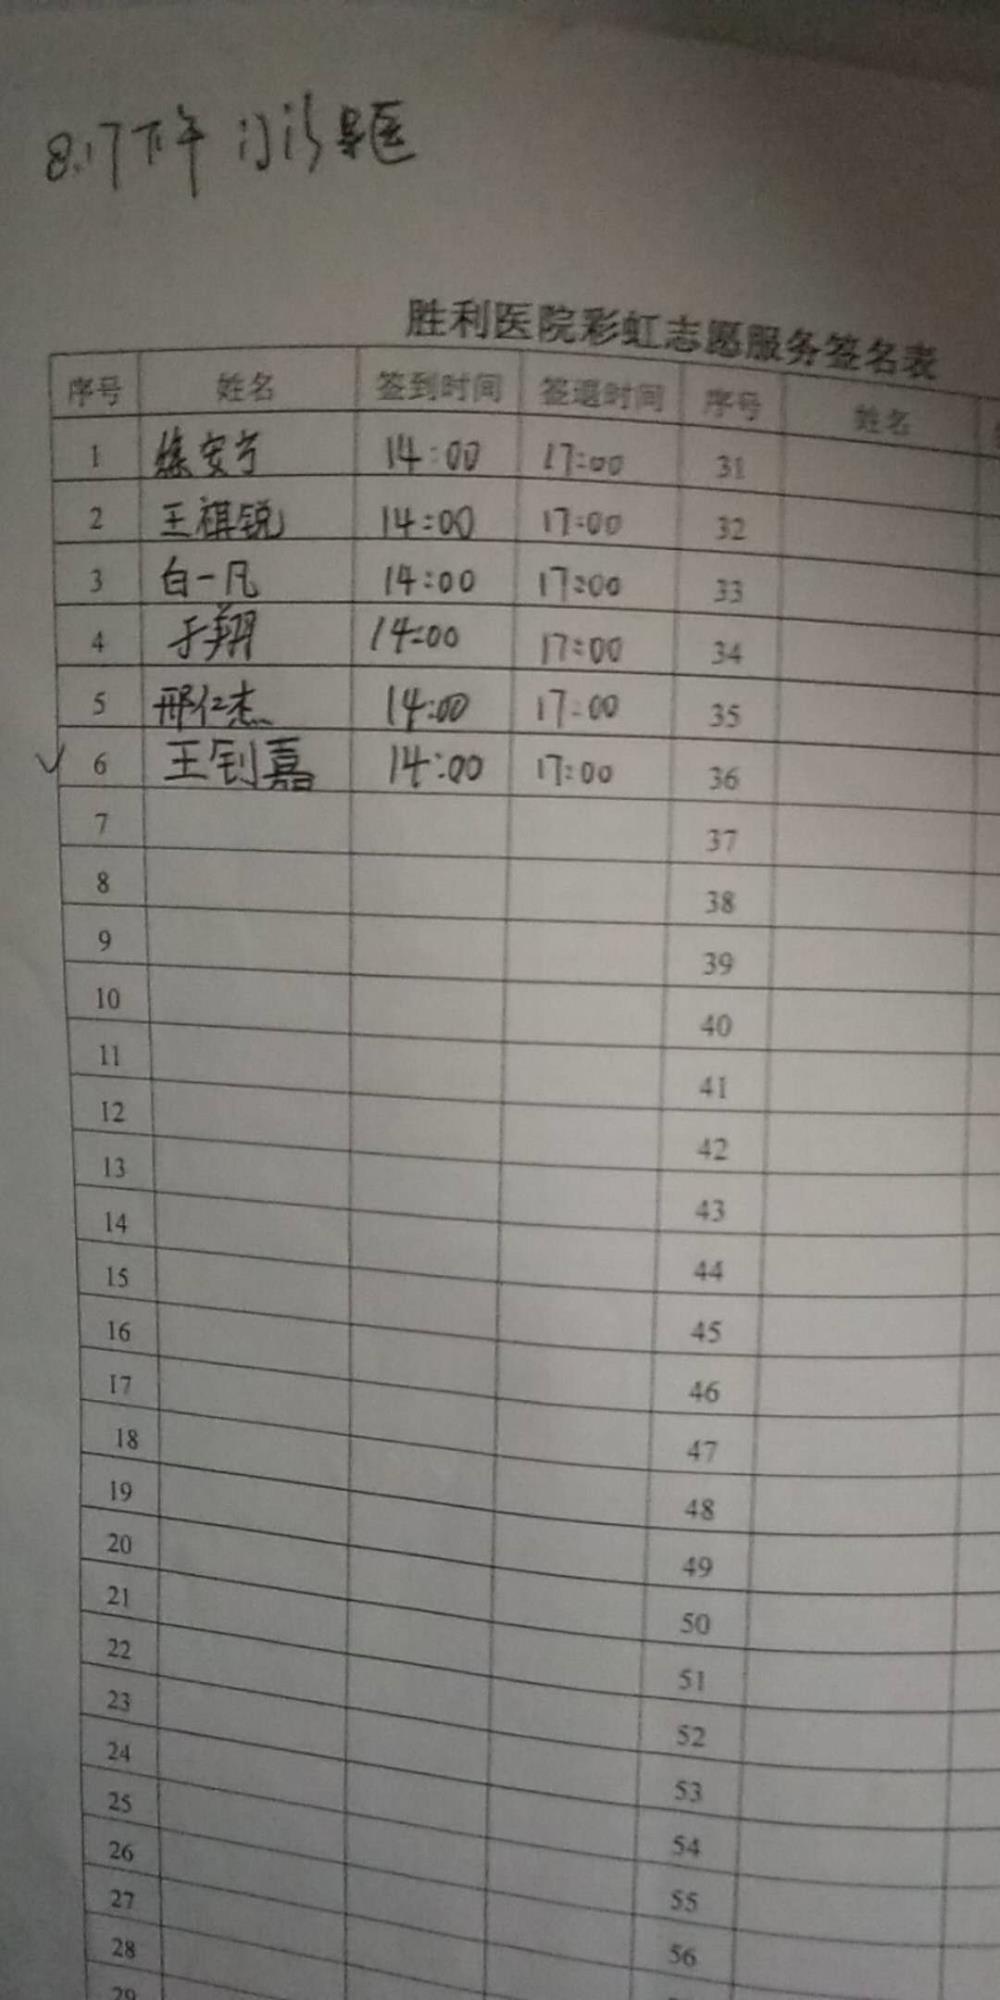 8.17下午 门诊导医
胜利医院彩虹志愿服务签名表
序号 姓名 签到时间 签退时间 序号 姓名
1 14:00 17:00 31
2 王祺锐 14:00 17:00 32
3 白一凡 14:00 17:00 33
4 于翔 14:00 17:00 34
5 邢仁杰 14:00 17:00 35
✓ 6 王钊嘉 14:00 17:00 36
7 37
8 38
9 39
10 40
11 41
12 42
13 43
14 44
15 45
16 46
17 47
18 48
19 49
20 50
21 51
22 52
23 53
24 54
25 55
26 56
27
28
29